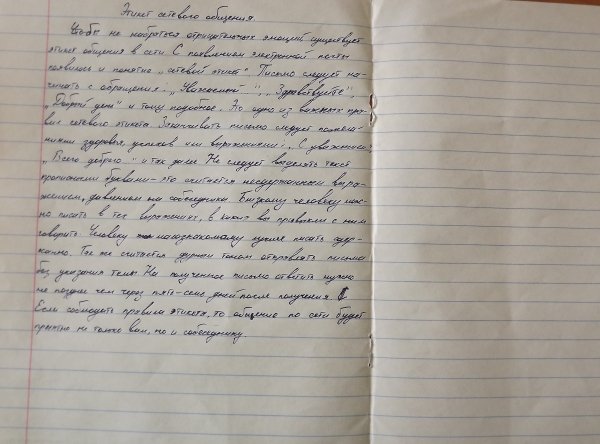 Этикет сетевого общения
Чтобы не набраться отрицательных эмоций существует
этикет общения в сети С появлением электронной почты
появилось и понятие „сетевой этикет". Письмо следует на-
чинать с обращения: „Уважаемый ", „Здравствуйте",
„Добрый день" и тому подобное. Это одно из важных пра-
вил сетевого этикета. Заканчивать письмо следует пожела-
ниями здоровья, успехов или выражениями: „С уважением",
„Всего доброго" и так далее Не следует выделять текст
прописными буквами - это считается несдержанным выра-
жением, давлением на собеседника. Близкому человеку мож-
но писать в тех выражениях, в каких вы привыкли с ним
говорить. Человеку малознакомому лучше писать сдер-
жанно. Так же считается дурным тоном отправлять письма
без указания темы На полученное письмо ответить нужно
не позднее чем через пять-семь дней после получения
Если соблюдать правила этикета, то общение по сети будет
приятно не только вам, но и собеседнику.